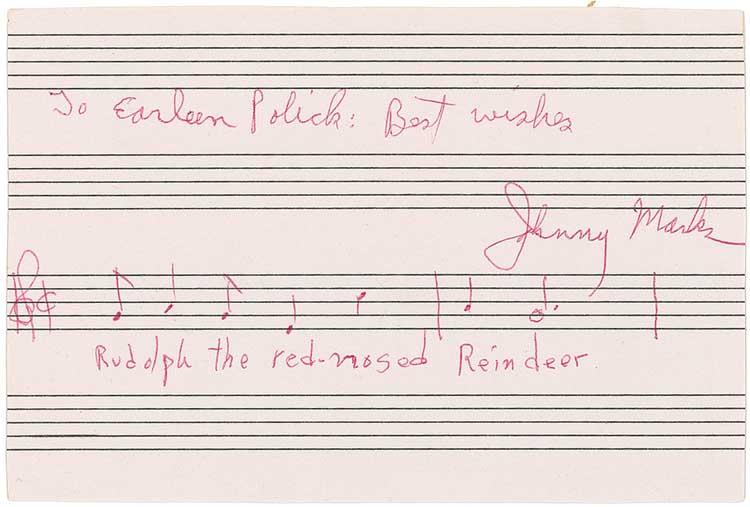 To Earleen Polick: Best wishes
Johnny Marks
Rudolph the red-nosed Reindeer